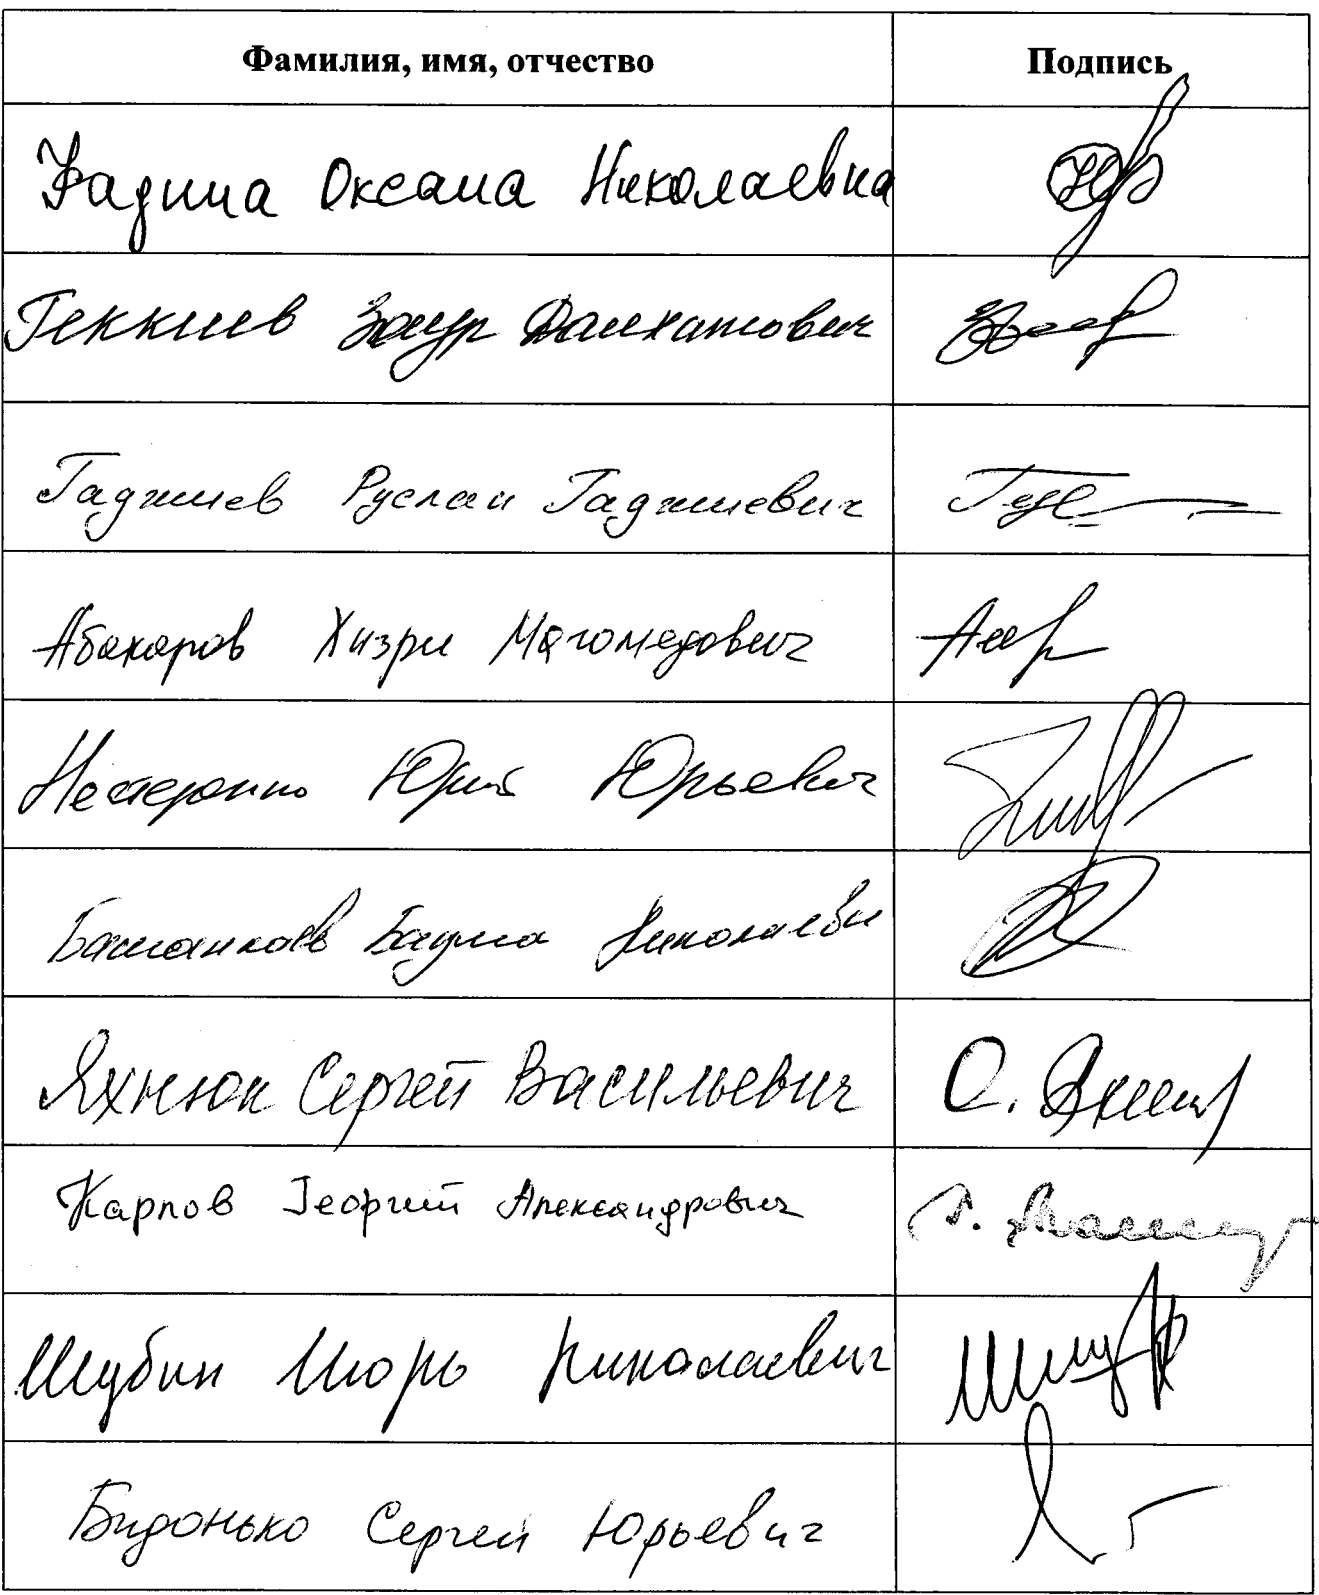 Фамилия, имя, отчество Подпись
Фадина Оксана Николаевна
Геккиев Заур Далхатович
Гаджиев Руслан Гаджиевич
Абакаров Хизри Магомедович
Нестеренко Юрий Юрьевич
Башанкаев Бадма Николаевич
Яхнюк Сергей Васильевич
Карпов Георгий Александрович
Шубин Игорь Николаевич
Бидонько Сергей Юрьевич